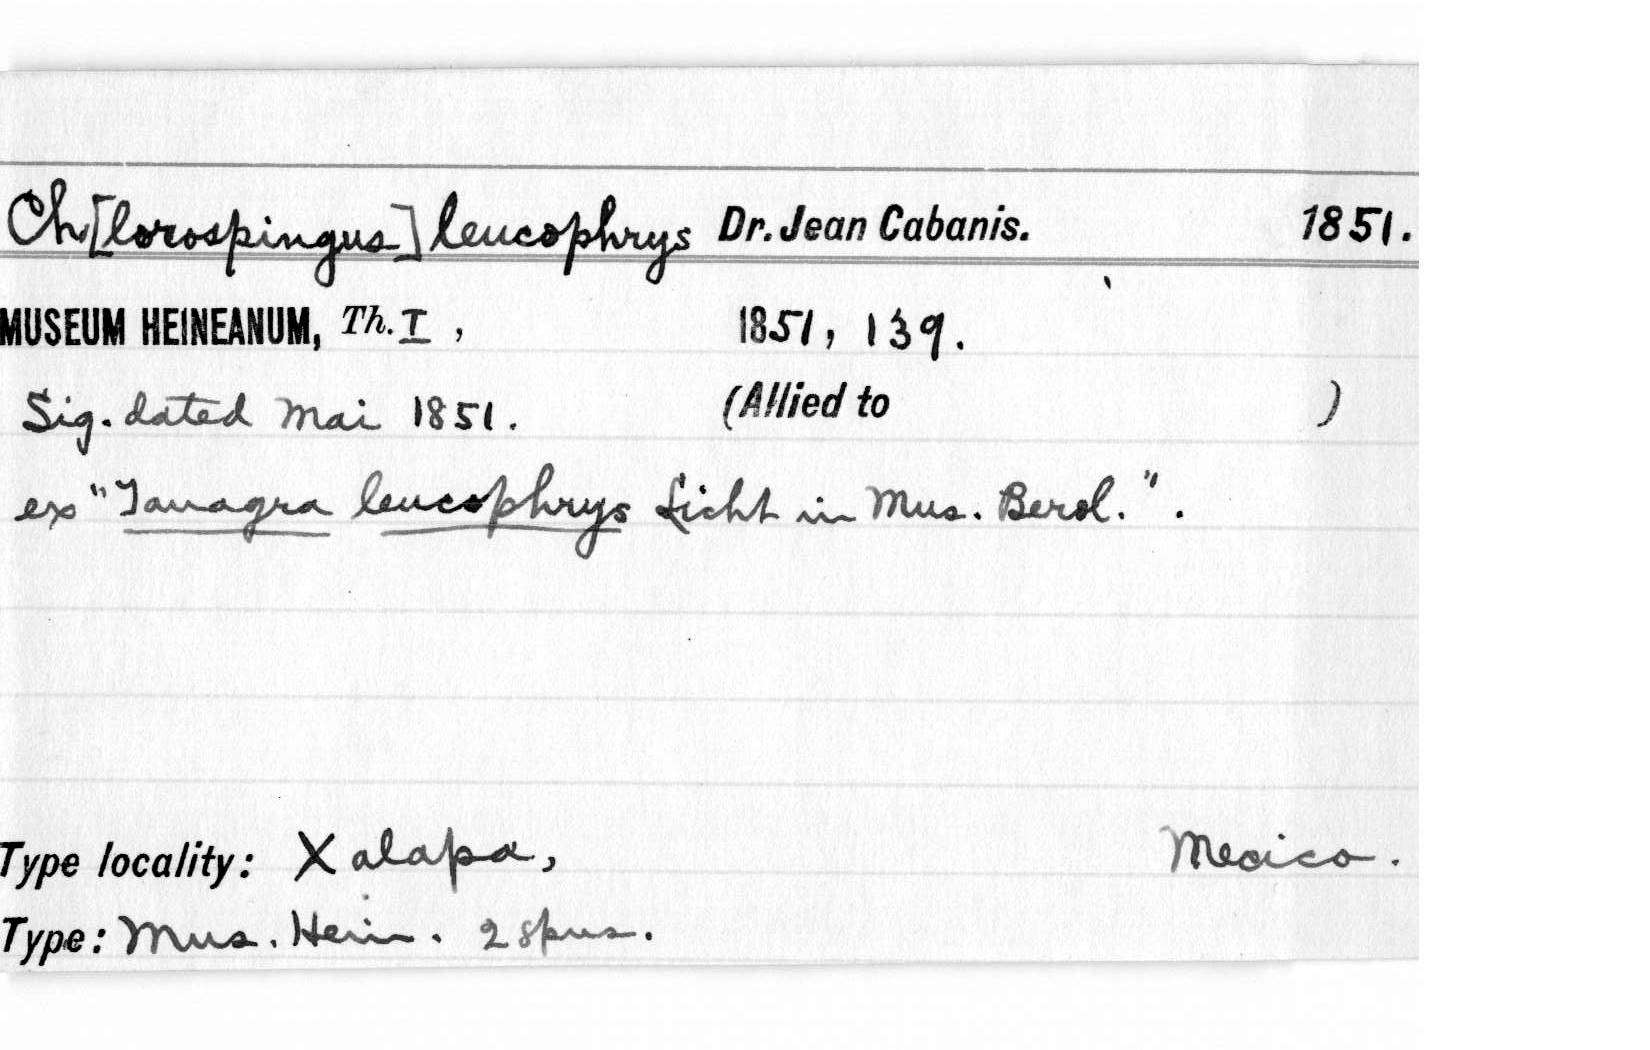 Ch[lorospingus] leucophrys Dr. Jean Cabanis. 1851.
MUSEUM HEINEANUM, Th. I, 1851, 139.
Sig. dated Mai 1851. (Allied to )
ex "Tanagra leucophrys Licht in Mus. Berol.".
Type locality: Xalapa, Mexico.
Type: Mus. Hein. 2 spns.